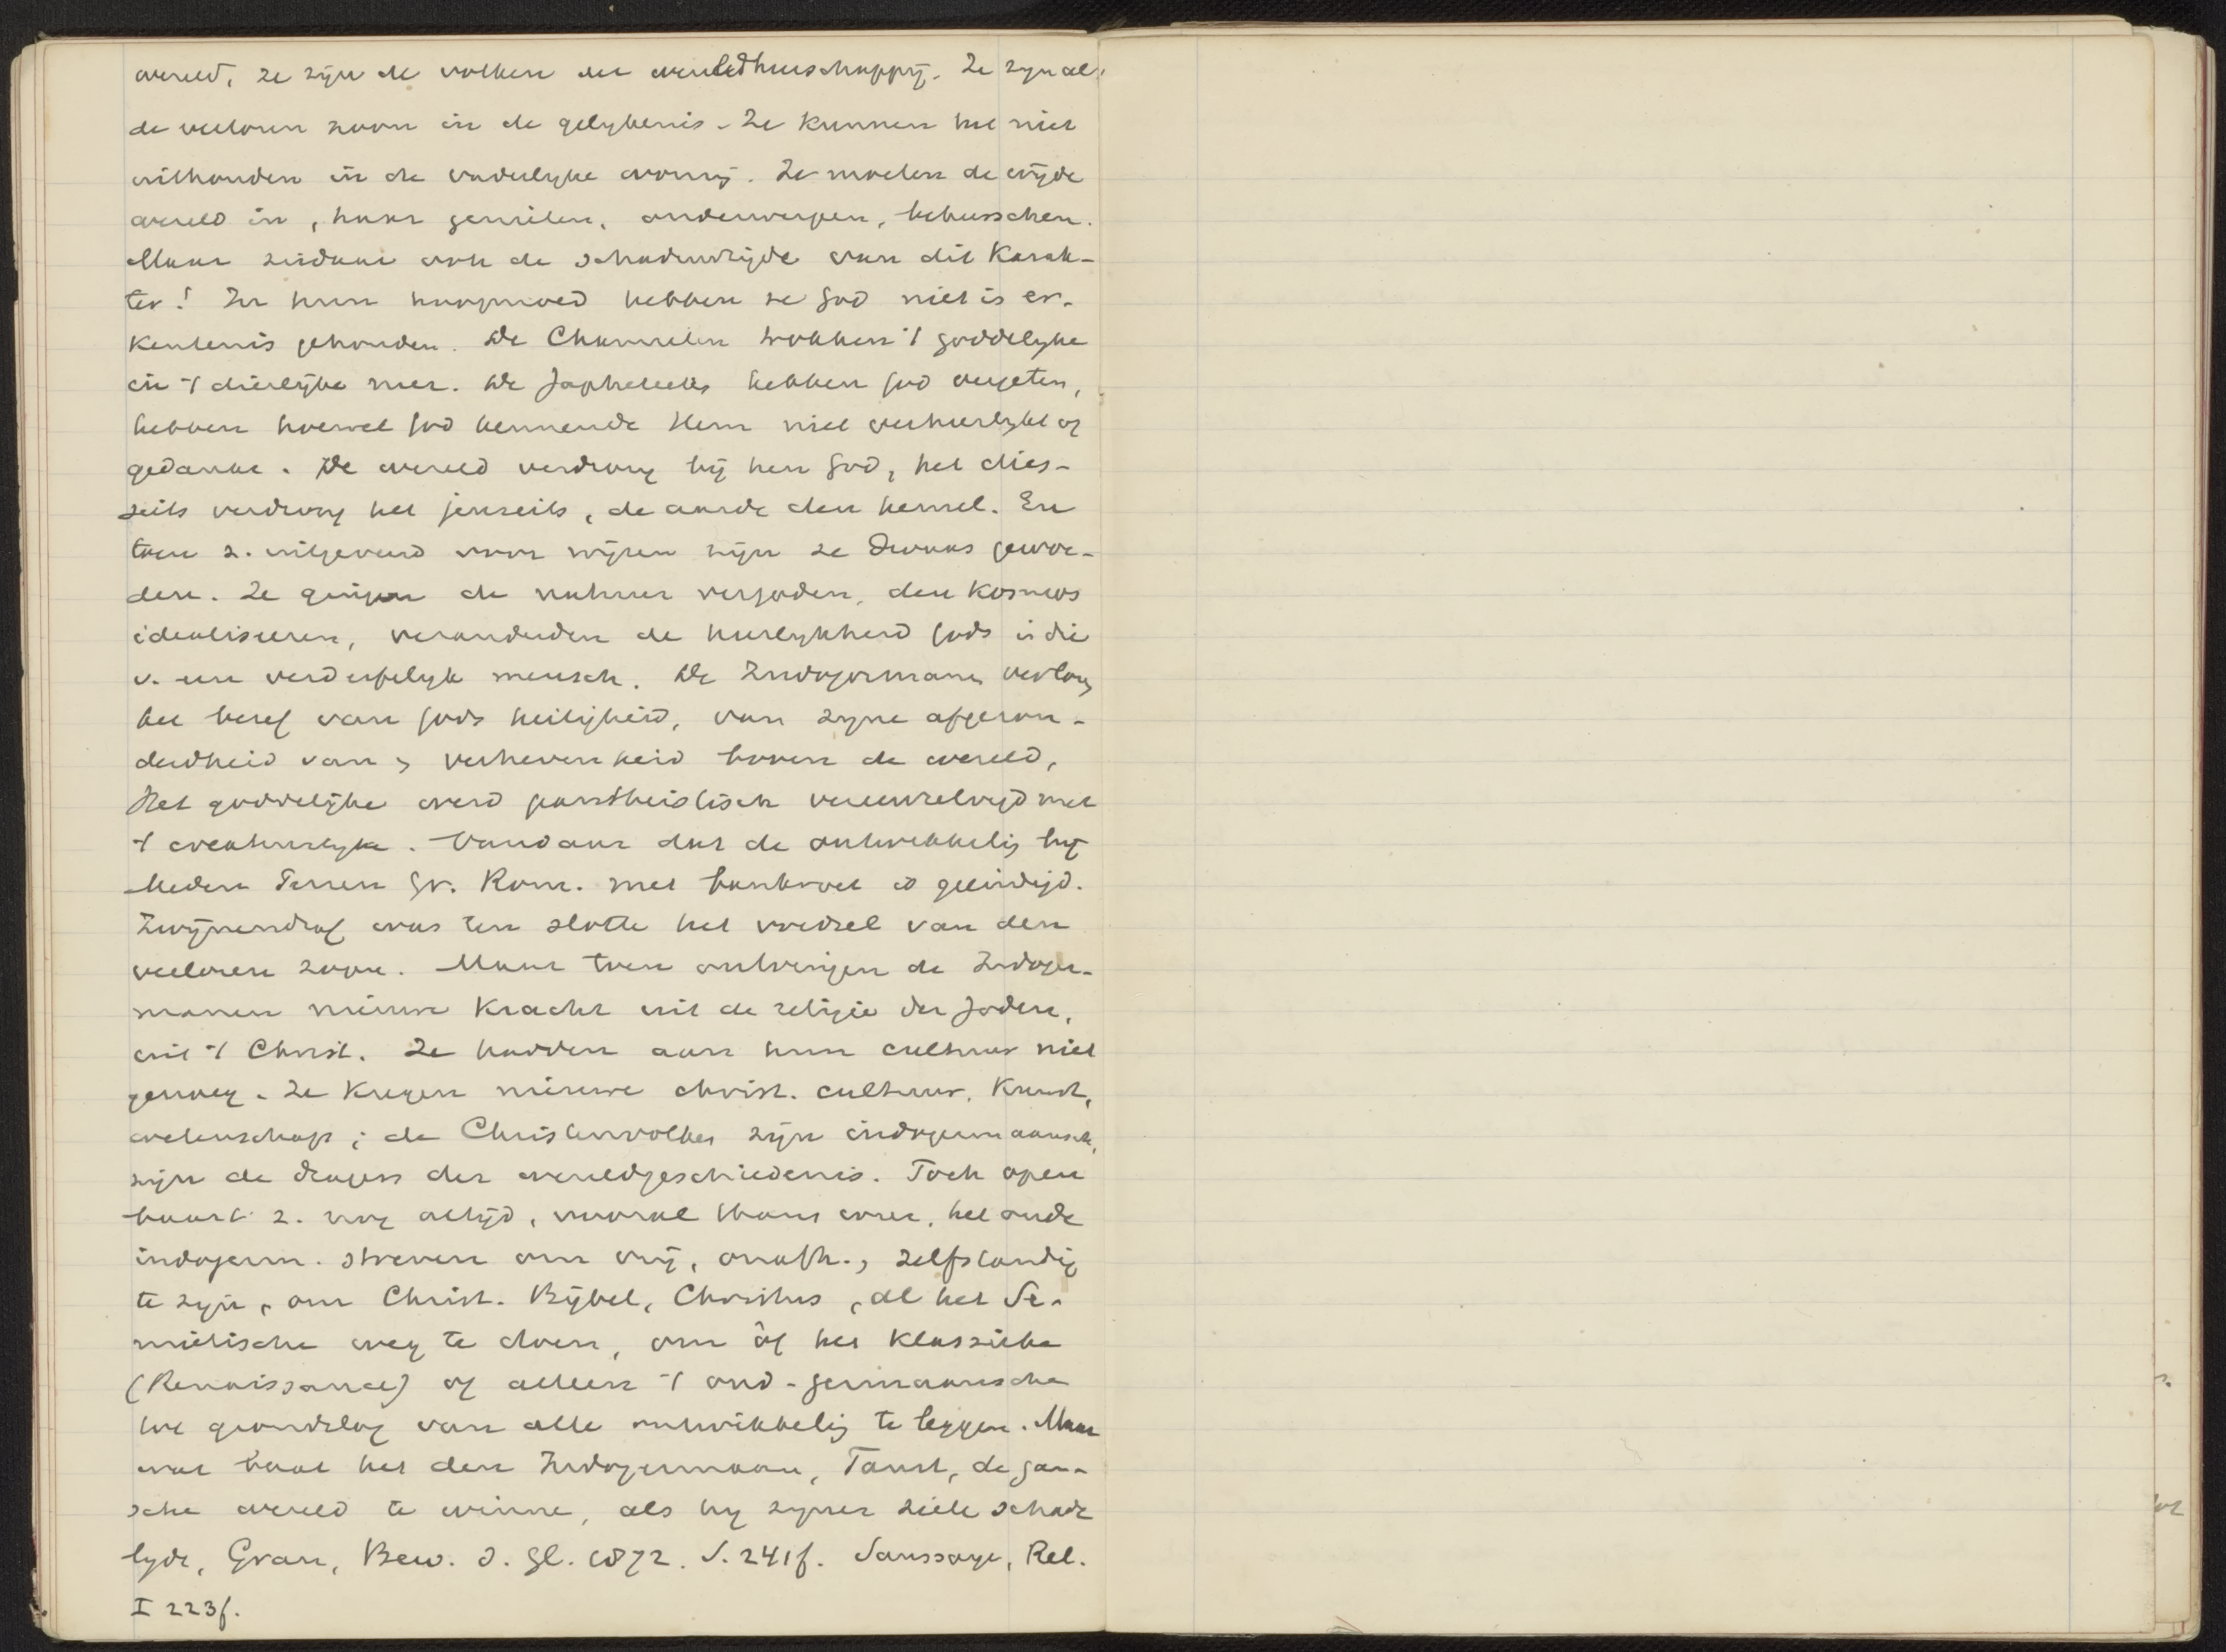 wereld, ze zijn de volken der wereldheerschappij. Ze zyn als
de verloren zoon in de gelykenis. Ze kunnen het niet
uithouden in de vaderlyke woning. Ze moeten de wijde
wereld in, haar genieten, onderwerpen, beheerschen.
Maar ziedaar ook de schaduwzijde van dit Karak-
ter! In hun hoogmoed hebben ze God niet in er-
kentenis gehouden. De Chamieten trokken 't goddelyke
in 't dierlijke neer. De Japhetieten hebben God vergeten,
hebben hoewel God kennende Hem niet verheerlykt of
gedankt. De wereld verdrong bij hen God, het dies-
seits verdrong het jenseits, de aarde den hemel. En
toen z. uitgevend voor wijzen zijn ze dwaas gewor-
den. Ze gingen de natuur vergoden, den Kosmos
idealiseeren, veranderden de heerlykheid Gods in die
v. een verderfelyk mensch. De Indogermanen verloren
het besef van Gods heiligheid, van zyne afgezon-
derdheid van en verhevenheid boven de wereld,
Het goddelijke werd pantheistisch vereenzelvigd met
't creatuurlyke. Vandaar dat de ontwikkeling bij
Meden Perzen Gr. Rom. met bankroet is geëindigd.
Zwijnendraf was ten slotte het voedsel van den
verloren zoon. Maar toen ontvingen de Indoger-
manen nieuwe Kracht uit de religie der Joden,
uit 't Christ. Ze hadden aan hun cultuur niet
genoeg. Ze Kregen nieuwe christ. cultuur, Kunst,
wetenschap; de Christenvolken zijn indogermaansch,
zijn de dragers der wereldgeschiedenis. Toch open
baart z. nog altijd, vooral thans weer, het oude
indogerm. streven om vrij, onafh., zelfstandig
te zyn, om Christ. Bijbel, Christus, al het Se-
mietische weg te doen, om òf het Klassieke
(Renaissance) of alleen 't oud-germaansche
tot grondslag van alle ontwikkeling te leggen. Maar
wat baat het den Indogermaan, Faust, de gan-
sche wereld te winne, als hy zyner ziele schade
lydt, Grau, Bew. d. Gl. 1872. S. 241f. Saussaye, Rel.
I 223f.